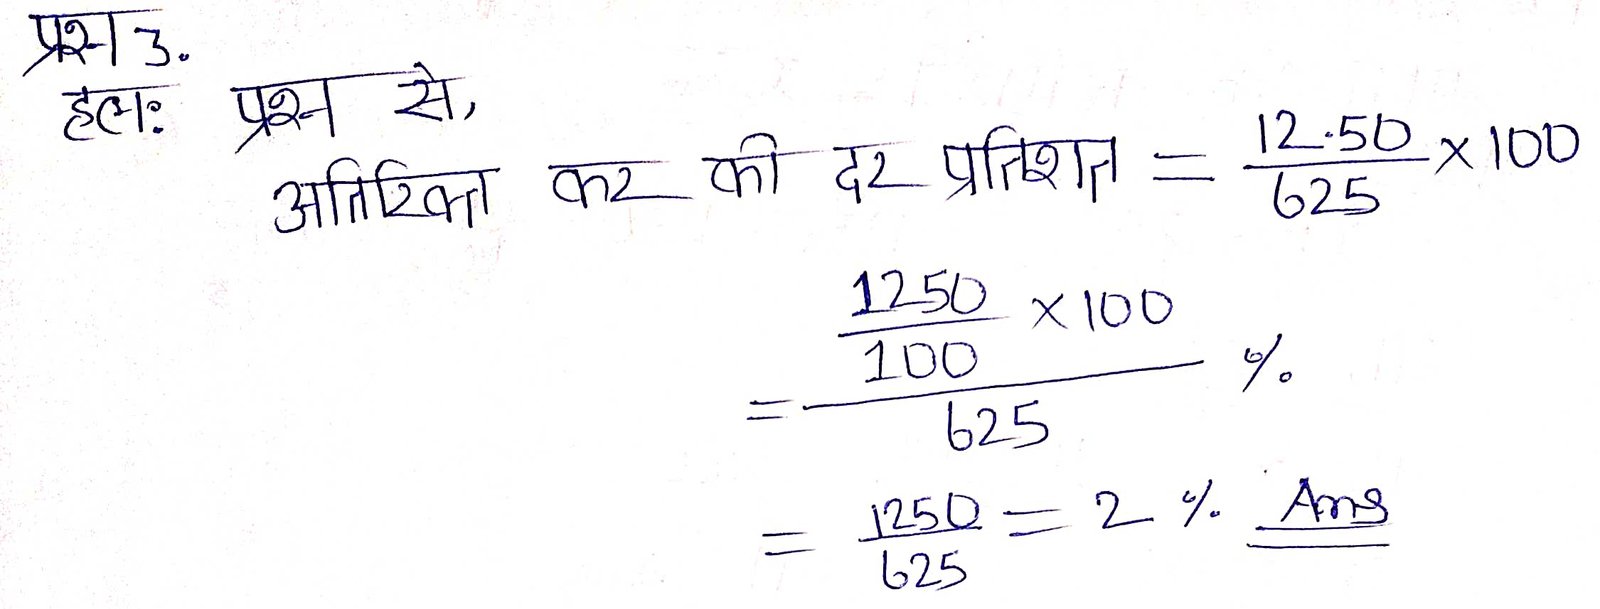 प्रश्न 3.
हलः प्रश्न से,
अतिरिक्त कर की दर प्रतिशत = 12.50/625 × 100
= (1250/100 × 100)/625 %
= 1250/625 = 2 % Ans